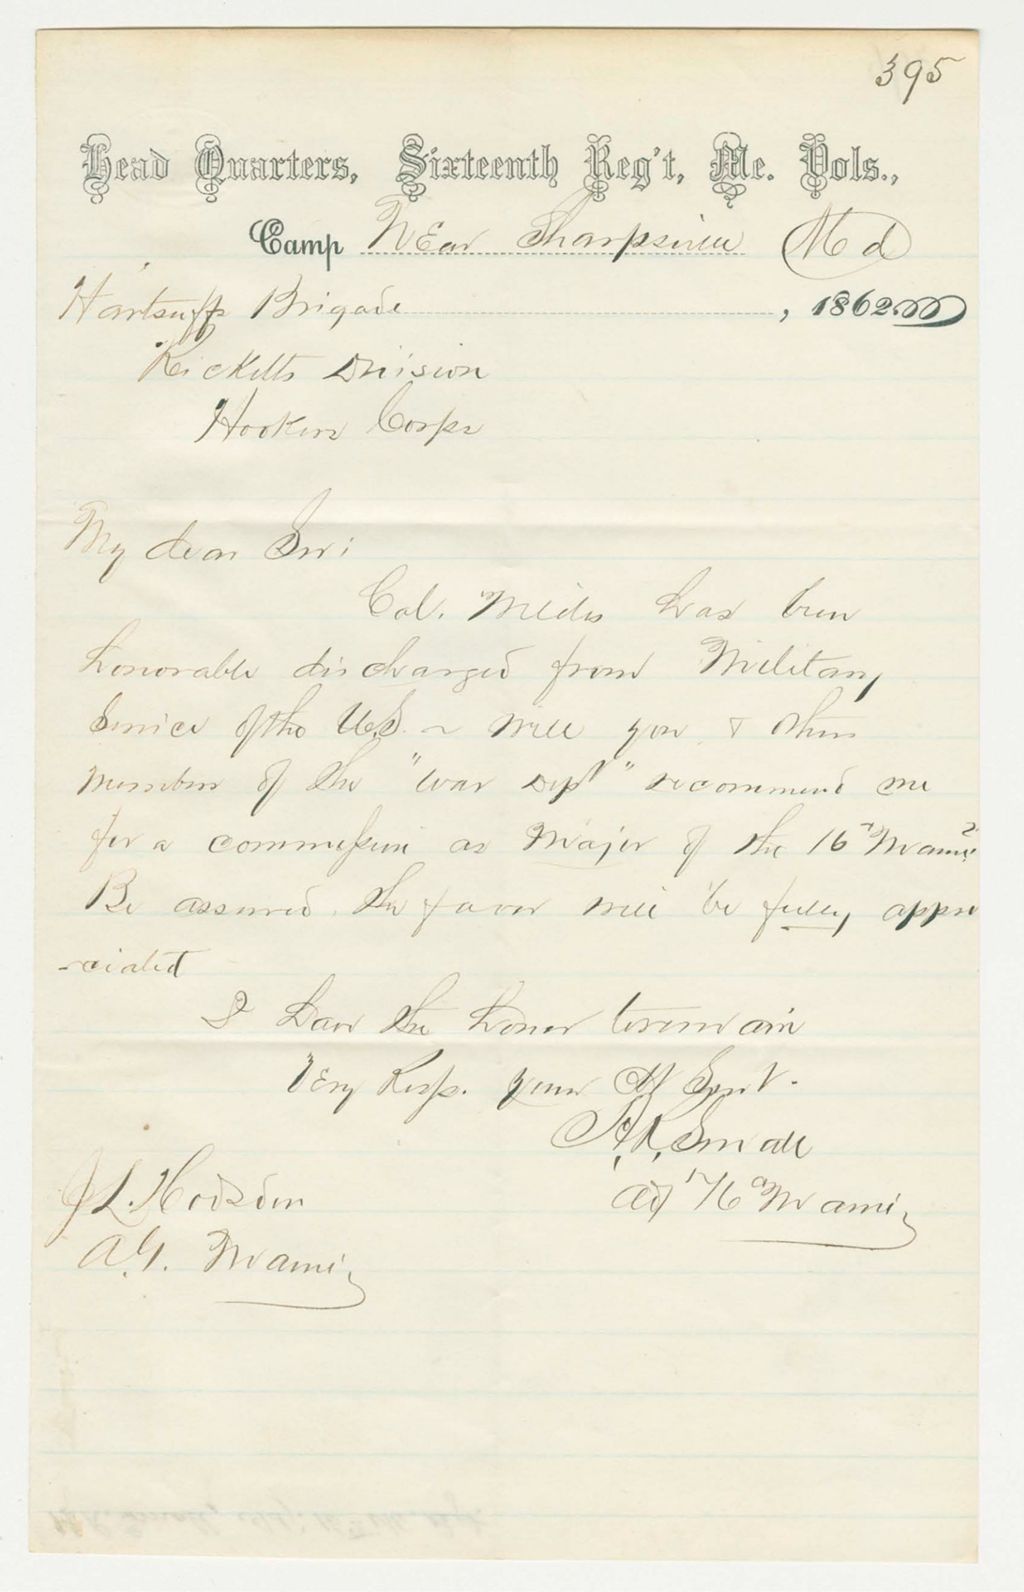 395
Head Quarters, Sixteenth Reg't, Me. Vols.,
Camp Near Sharpsville Md
Hartsuffs Brigade , 1862
Ricketts Division
Hookers Corps
My dear Sir;
Col. Wildes has been
honorable discharged from Military
Service of the U.S. ~ will you & other
members of the "War Dept" recommend me
for a commission as Major of the 16th Maine?
Be assured the favor will be fully appre
-ciated
I have the honor to remain
Very Resp. your Ob Servt.
A. R. Small
Adj 16th Maine
J L. Hodsdon
A. G. Maine